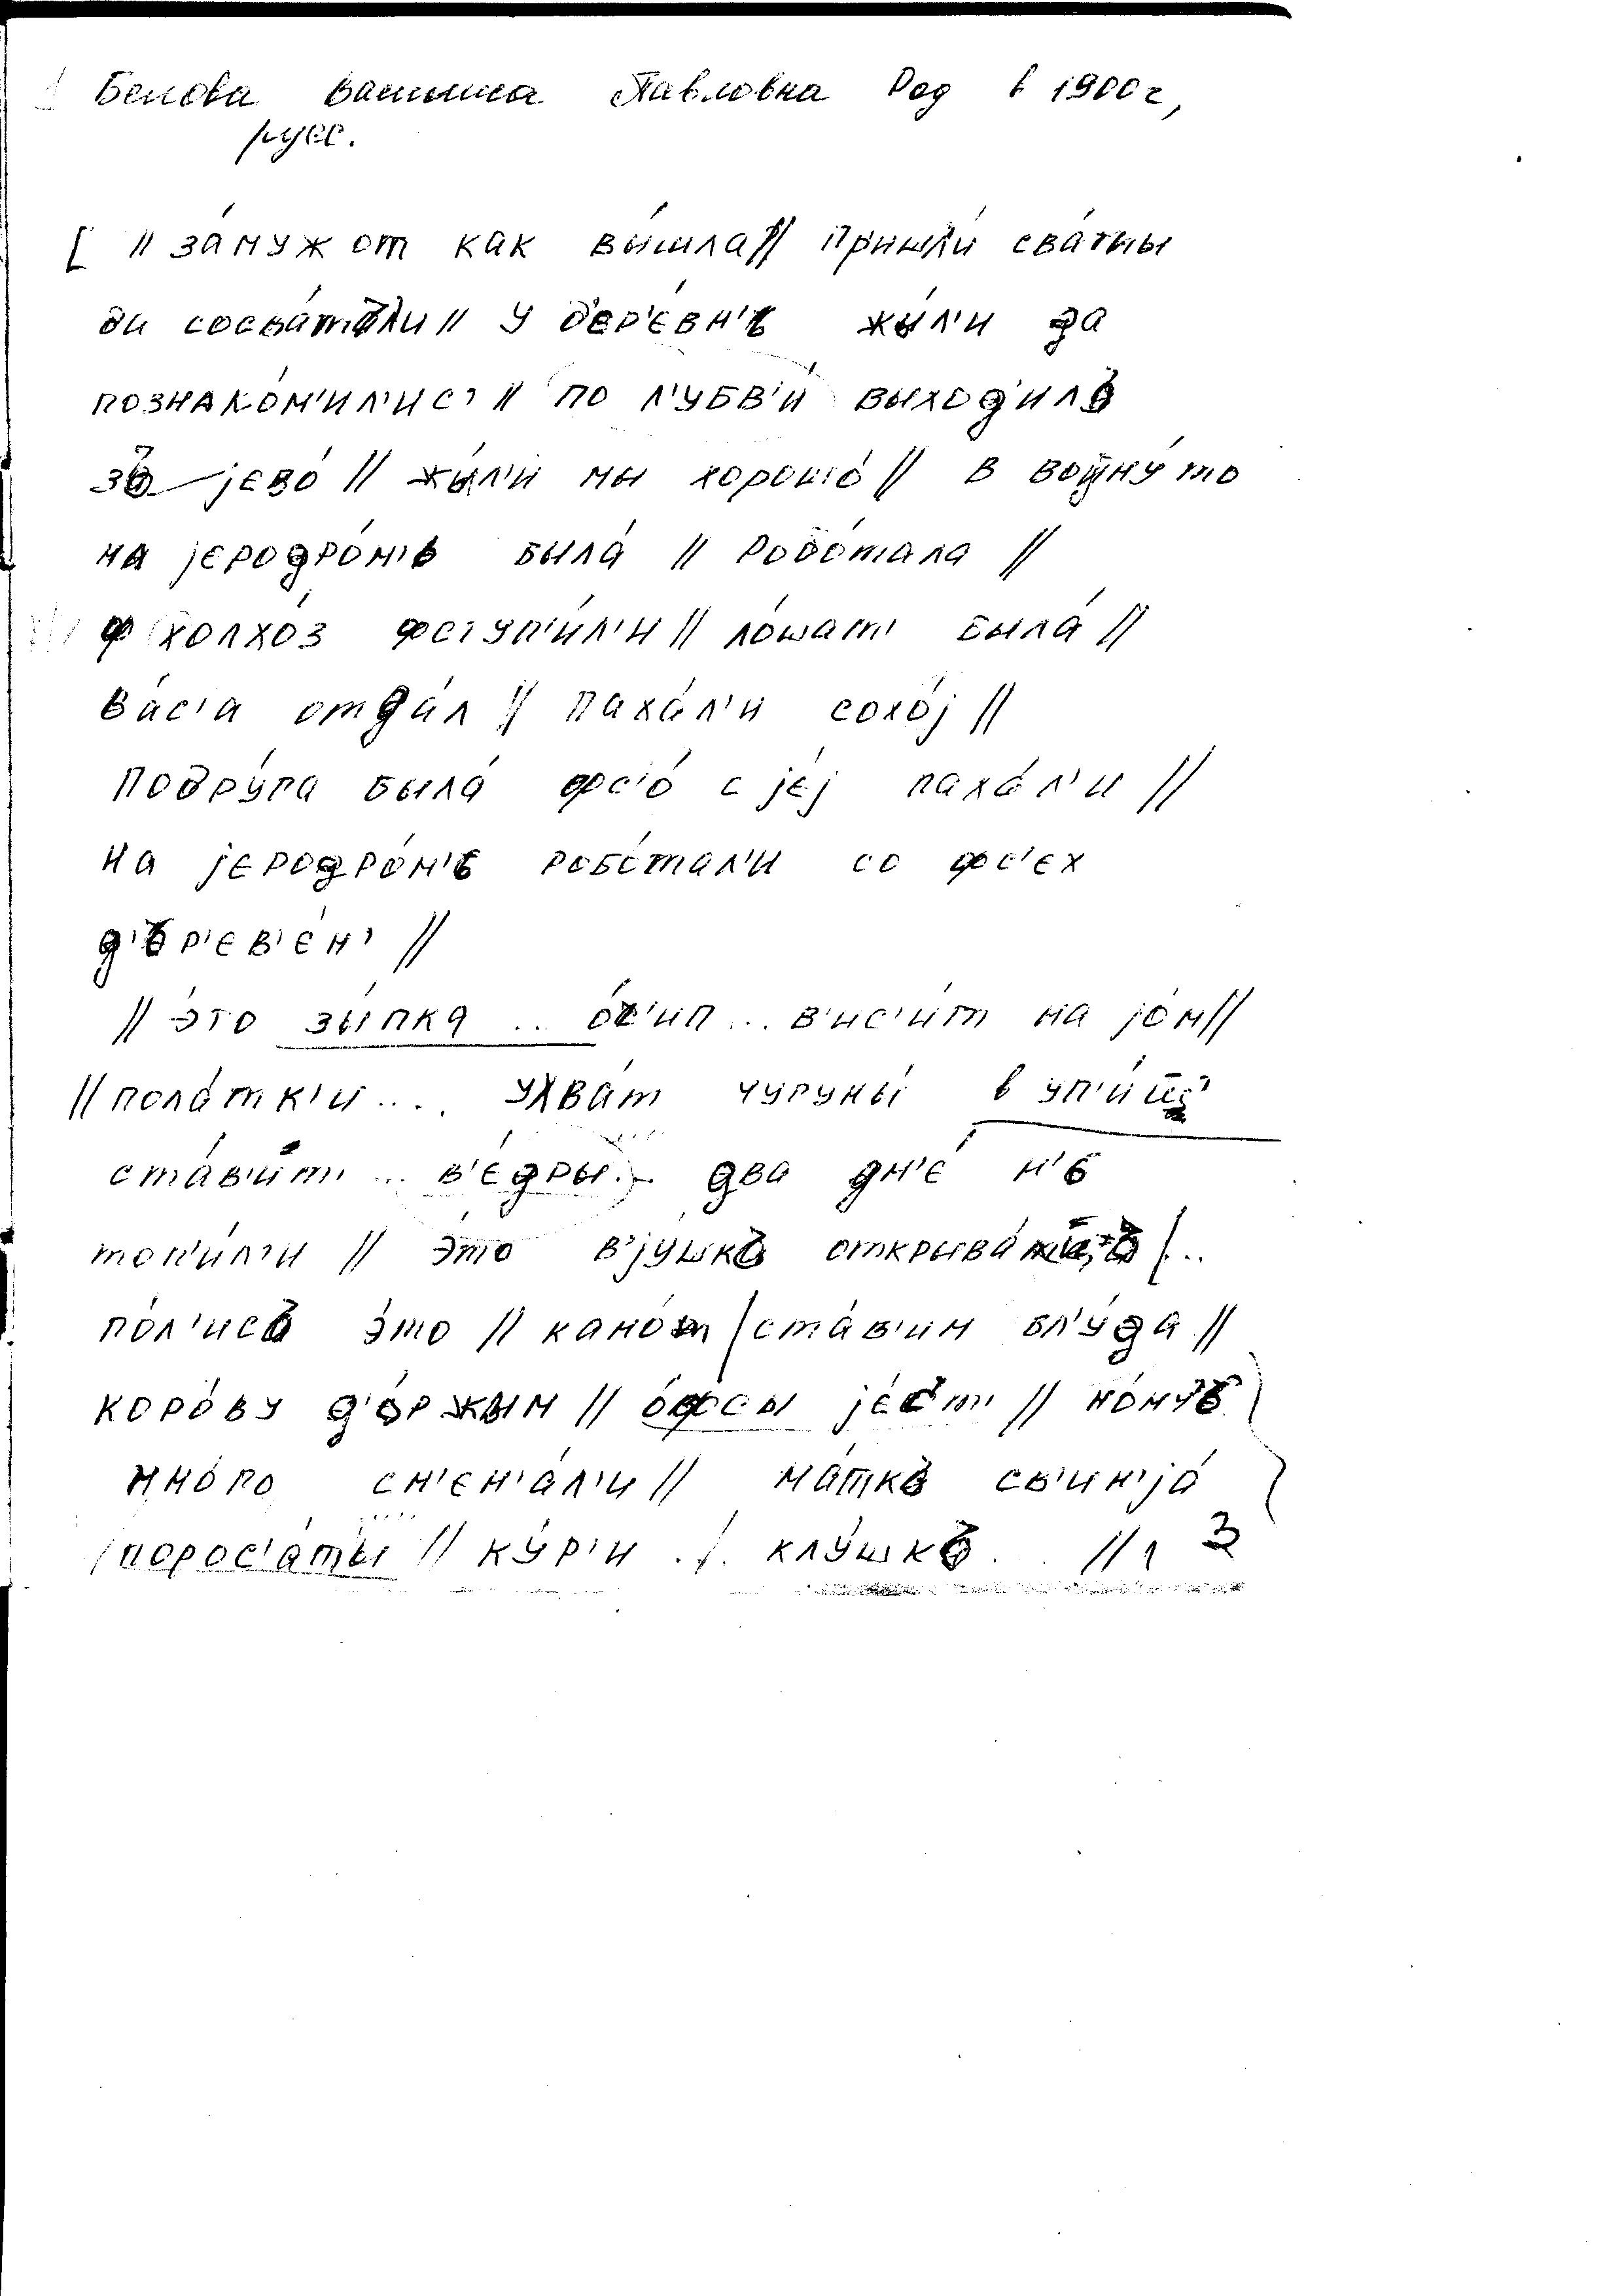 Белова Василиса Павловна Род в 1900г,
русс.
[ // за́муж от как вы́шла // пришли́ сва́тны
да сосва́тъли // У д'ер'е́вн'ь жы́л'и да
познако́м'ил'ис' // по л'убв'и́ выход'илъ
зъ јево́ // жы́л'и мы хорошо́ // в войну́ то
на јеродро́м'ь была́ // робо́тала //
ф холхо́з фступ'и́л'и // ло́шат' была́ //
Ва́с'а отда́л // паха́л'и сохо́ј //
подру́га была́ фс'о́ с је́ј паха́л'и //
на јеродро́м'ь робо́тал'и со фс'ех
д'ър'ев'е́н' //
// э́то зы́пка .. о́с'ип ... в'ис'и́т на јо́м //
// пола́тк'и .... ухва́т чугуны́
ста́в'ит' .. в'е́дры .. два дн'е́ н'ь
топ'и́л'и // э́то в'ју́шкъ
по́л'исъ э́то // кано́т / ста́в'им бл'у́да //
коро́ву д'о́ржым // о́фсы је́ст' //
мно́го см'ен'а́л'и // ма́ткъ св'ин'ја́
/ порос'а́ты // ку́р'и ./. клу́шкъ .. // 1 3